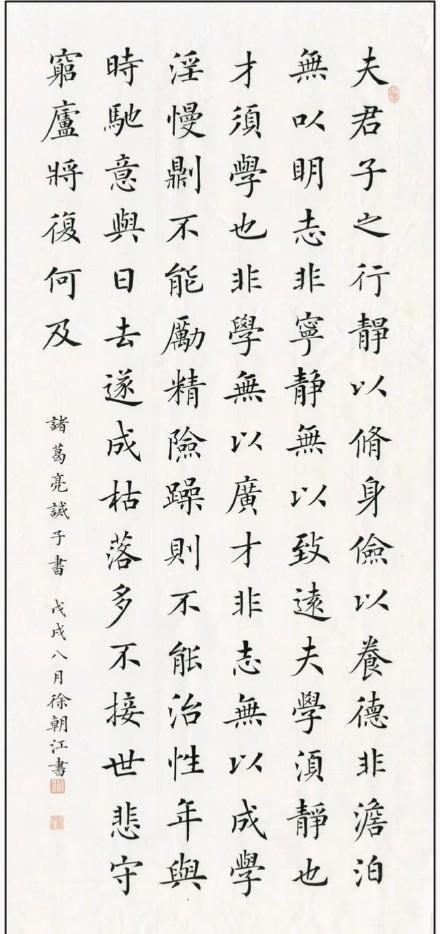 夫君子之行靜以脩身儉以養德非澹泊
無以明志非寧靜無以致遠夫學須靜也
才須學也非學無以廣才非志無以成學
淫慢𠟭不能勵精險躁則不能治性年與
時馳意與日去遂成枯落多不接世悲守
窮廬將復何及
諸葛亮誡子書 戊戌八月徐朝江書